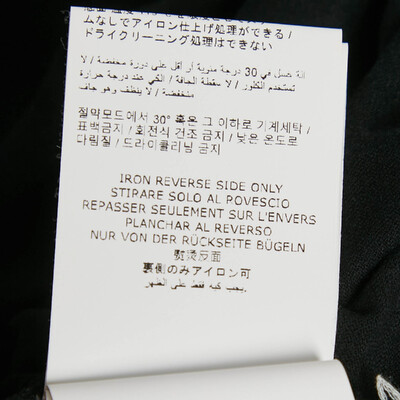 ムなしでアイロン仕上げ処理ができる /
ドライクリーニング処理はできない
لة غسل في 30 درجة مئوية أو أقل على دورة مخفضة / لا
تستخدم الكلور / لا
الكي عند درجة حرارة
منخفضة / لا ينظف وهو جاف
절약모드에서 30° 혹은 그 이하로 기계세탁 /
표백금지 / 회전식 건조 금지 / 낮은 온도로
다림질 / 드라이클리닝 금지
IRON REVERSE SIDE ONLY
STIRARE SOLO AL ROVESCIO
REPASSER SEULEMENT SUR L'ENVERS
PLANCHAR AL REVERSO
NUR VON DER RÜCKSEITE BÜGELN
熨烫反面
裏側のみアイロン可
يجب كيه فقط على الظهر.